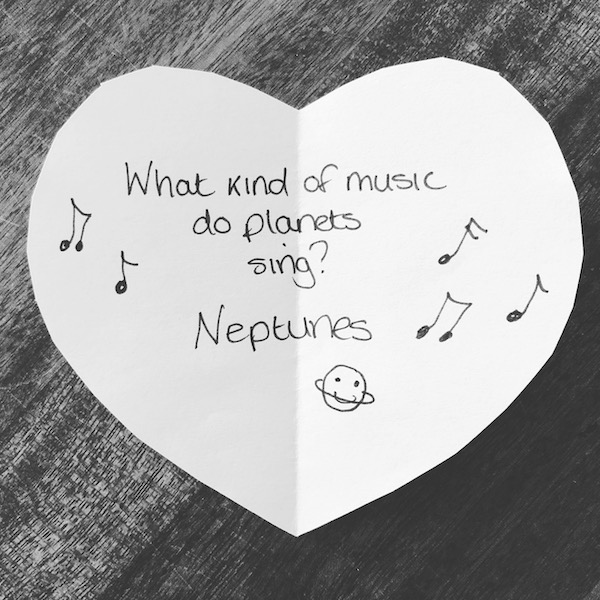 What kind of music
do planets
sing?
Neptunes